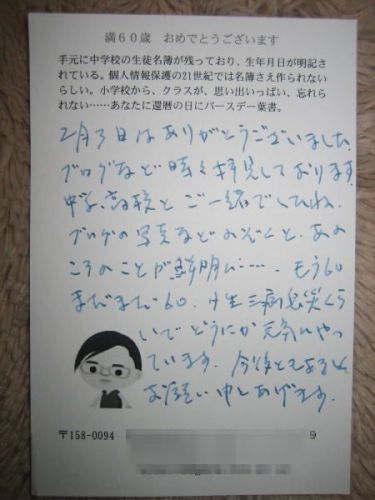 満60歳　おめでとうございます
手元に中学校の生徒名簿が残っており、生年月日が明記
されている。個人情報保護の21世紀では名簿さえ作られない
らしい。小学校から、クラスが、思い出いっぱい、忘れら
れない……あなたに還暦の日にバースデー葉書。
2月3日はありがとうございました。
ブログなど時々拝見しております。
中学、高校と ご一緒でしたね。
ブログの写真などのぞくと、あの
ころのことが鮮明に……. もう60
まだまだ60.
いで どうにか 元気にやっ
ています. 今後ともよろしく
お願い申しあげます.
〒158-0094
9